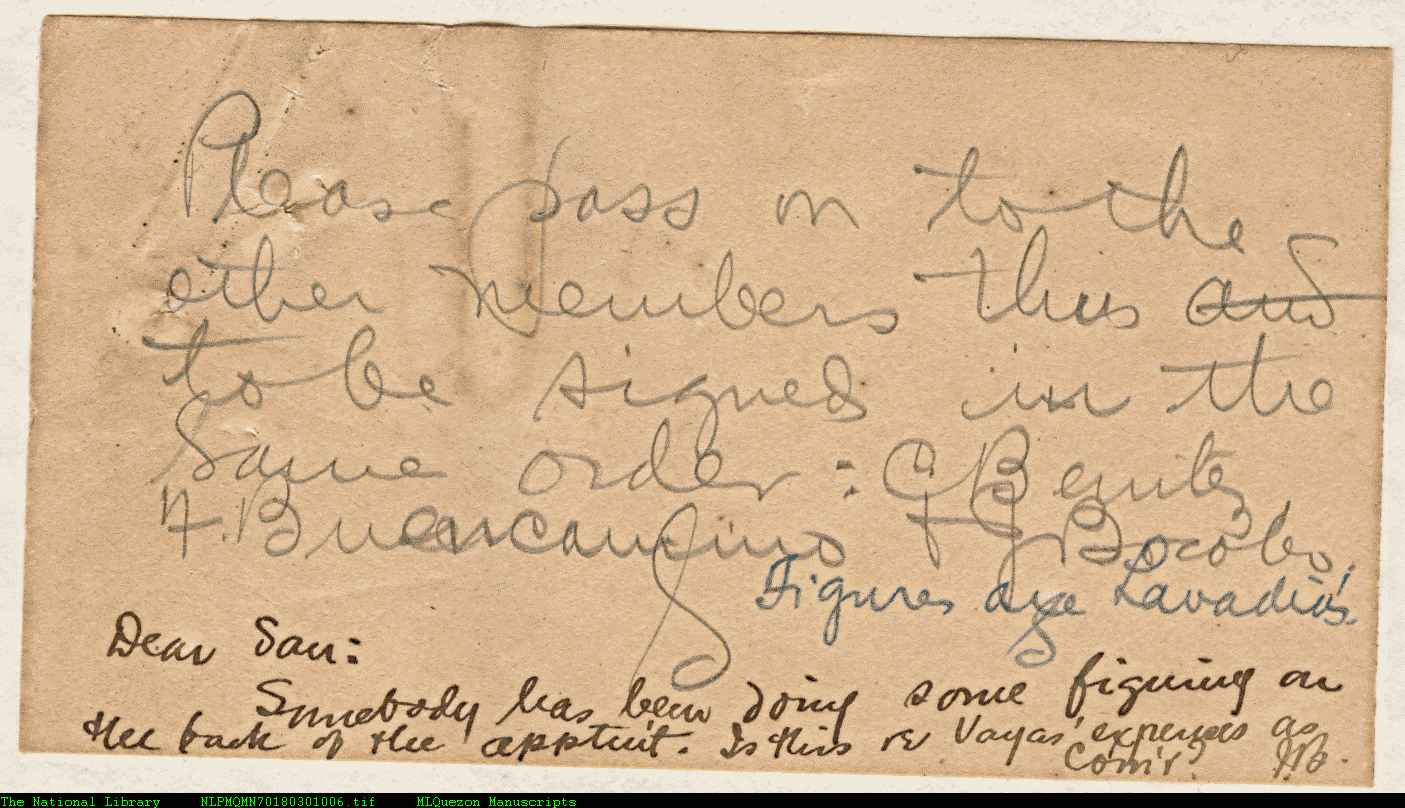 Please pass on to the
other members thus and
to be signed in the
same order: C Benitez
F. Buencamino + J Bocobo.
Figures are Lavadia's.
Dear San:
Somebody has been doing some figuring on
the back of the apptm't. Is this re Vayas' expenses as
Com'r?
The National Library NLPMQMN70180301006.tif MLQuezon Manuscripts